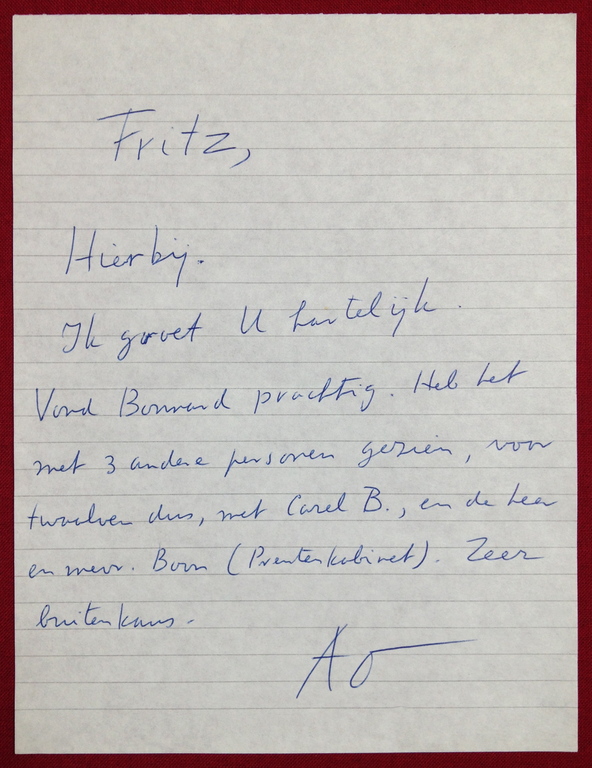 Fritz,
Hierbij.
Ik groet U hartelijk.
Vond Bonnard prachtig. Heb het
met 3 andere personen gezien, voor
twaalven dus, met Carel B., en de heer
en mevr. Boon (Prentenkabinet). Zeer
buitenkans.